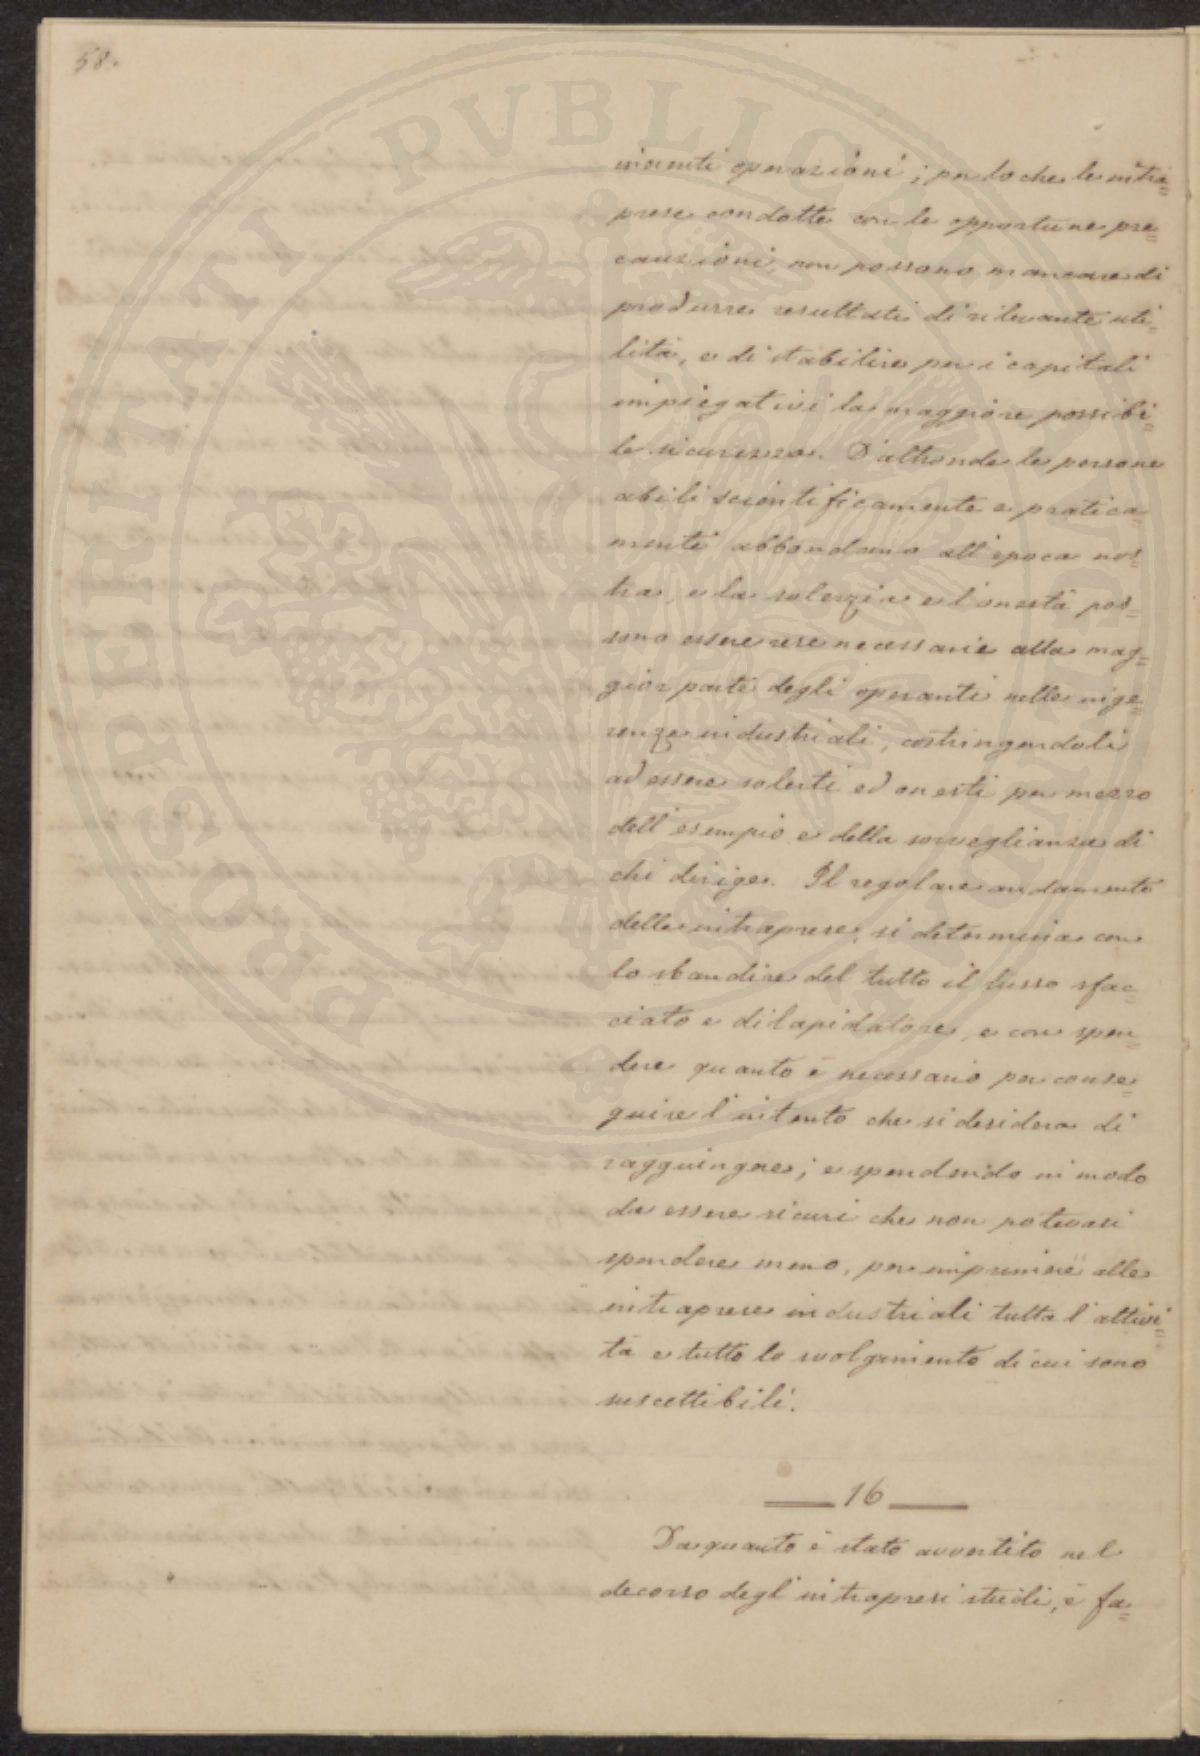 58.
inerenti operazioni; per lo che le intra=
prese condotte con le opportune pre=
cauzioni, non possono mancare di
produrre resultati di rilevante uti=
lità, e di stabilire per i capitali
impiegativi la maggiore possibi=
le sicurezza. D'altronde le persone
abili scientificamente e pratica=
mente abbondano all'epoca nos=
tra, e la solerzia e l'onestà pos=
sono essere rese necessarie alla mag=
gior parte degli operanti nelle inge=
renze industriali, costringendoli
ad essere solerti ed onesti per mezzo
dell'esempio e della sorveglianza di
chi dirige. Il regolare andamento
delle intraprese, si determina con
lo sbandire del tutto il lusso sfac=
ciato e dilapidatore, e con spen=
dere quanto è necessario per conse=
guire l'intento che si desidera di
raggiungere; e spendendo in modo
da essere sicuri che non potevasi
spendere meno, per imprimere alle
intraprese industriali tutta l'attivi=
tà e tutto lo svolgimento di cui sono
suscettibili.
16
Da quanto è stato avvertito nel
decorso degl'intrapresi studi, è fa=
PROSPERITATI PVBLICAE AVGENDAE